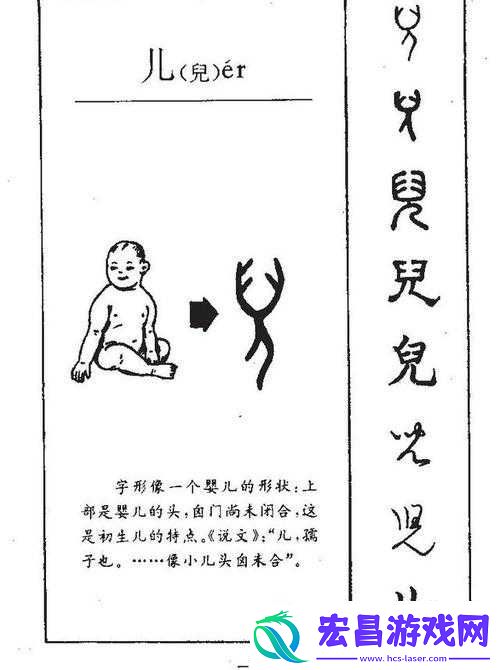 儿(兒)ér
字形像一个婴儿的形状:上
部是婴儿的头,囟门尚未闭合,这
是初生儿的特点。《说文》:“儿,孺
子也。……像小儿头囟未合”。
兒
兒
兒
宏昌游戏网
www.hcs-laser.com